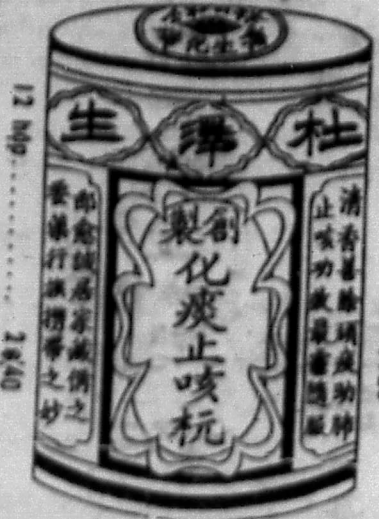 杜澤生
清香善除頑痰助肺
止咳功效最靈隨服
創製
化痰止咳杬
即愈誠居家藏備之
要藥行旅携帶之妙
12 hộp.......... 2$40